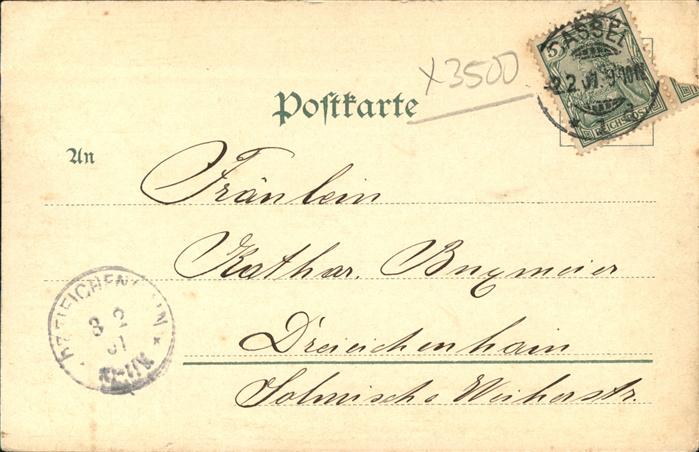 5
CASSEL
2.2.01. 9-10N
REICHSPOST
X3500
Postkarte
An
Fräulein
Kathar. Buxmeier
Dreieichenhain
Solmische Weiherstr.
DREIEICHENHAIN
3 2
01